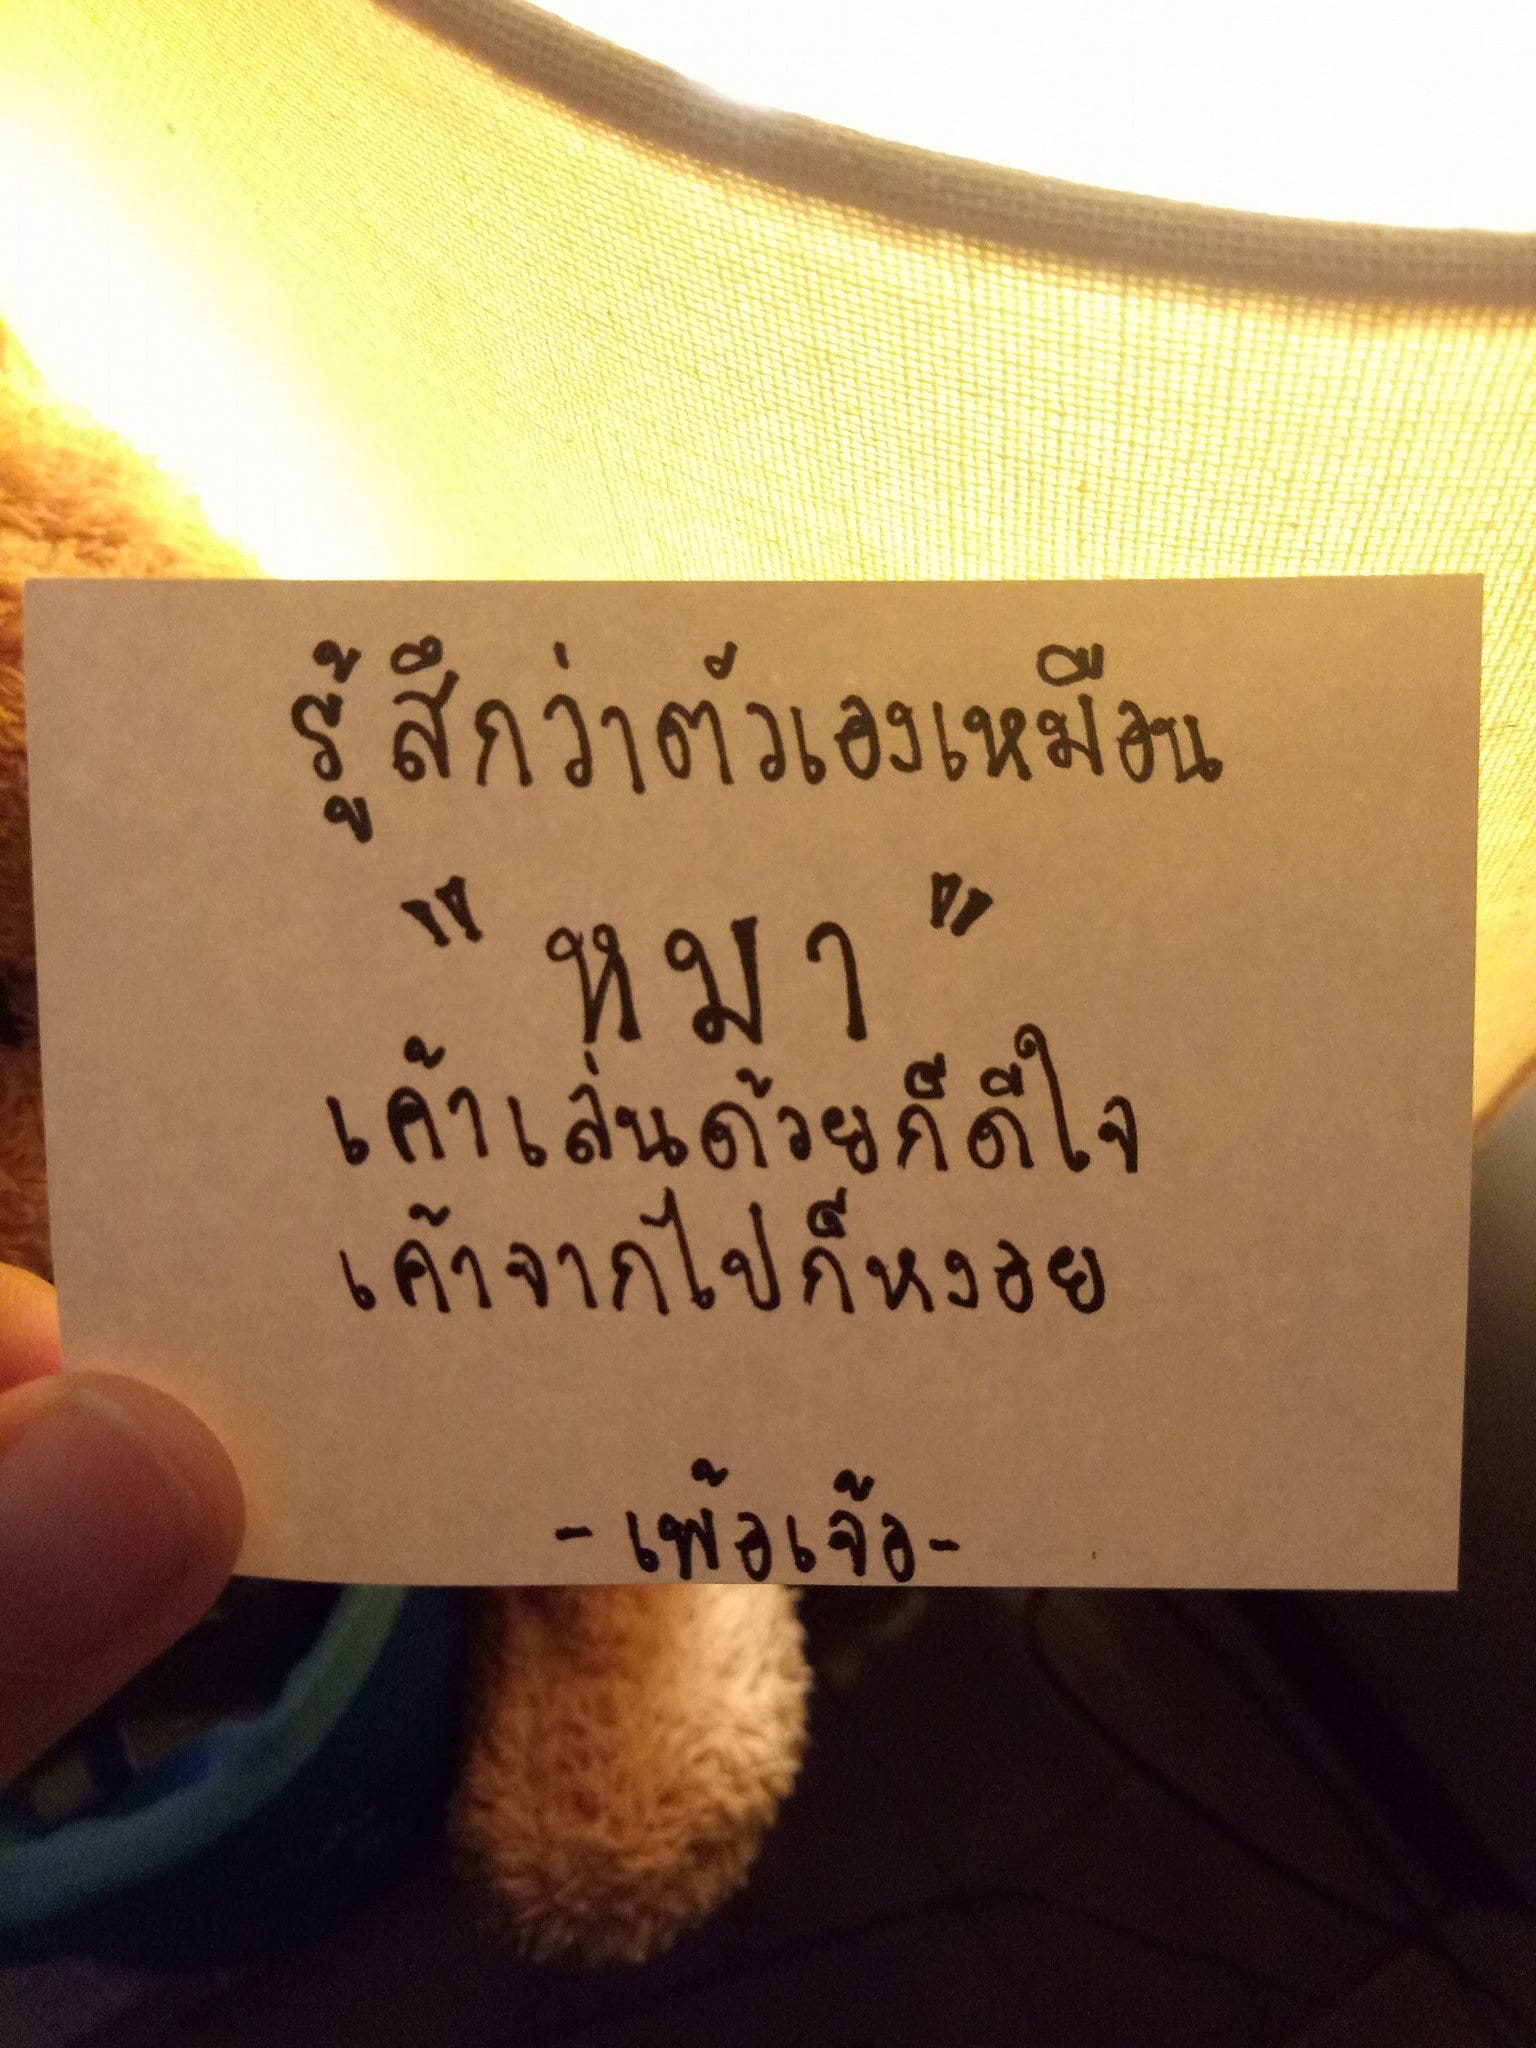 รู้สึกว่าตัวเองเหมือน
"หมา"
เค้าเล่นด้วยก็ดีใจ
เค้าจากไปก็หงอย
-เพ้อเจ้อ-